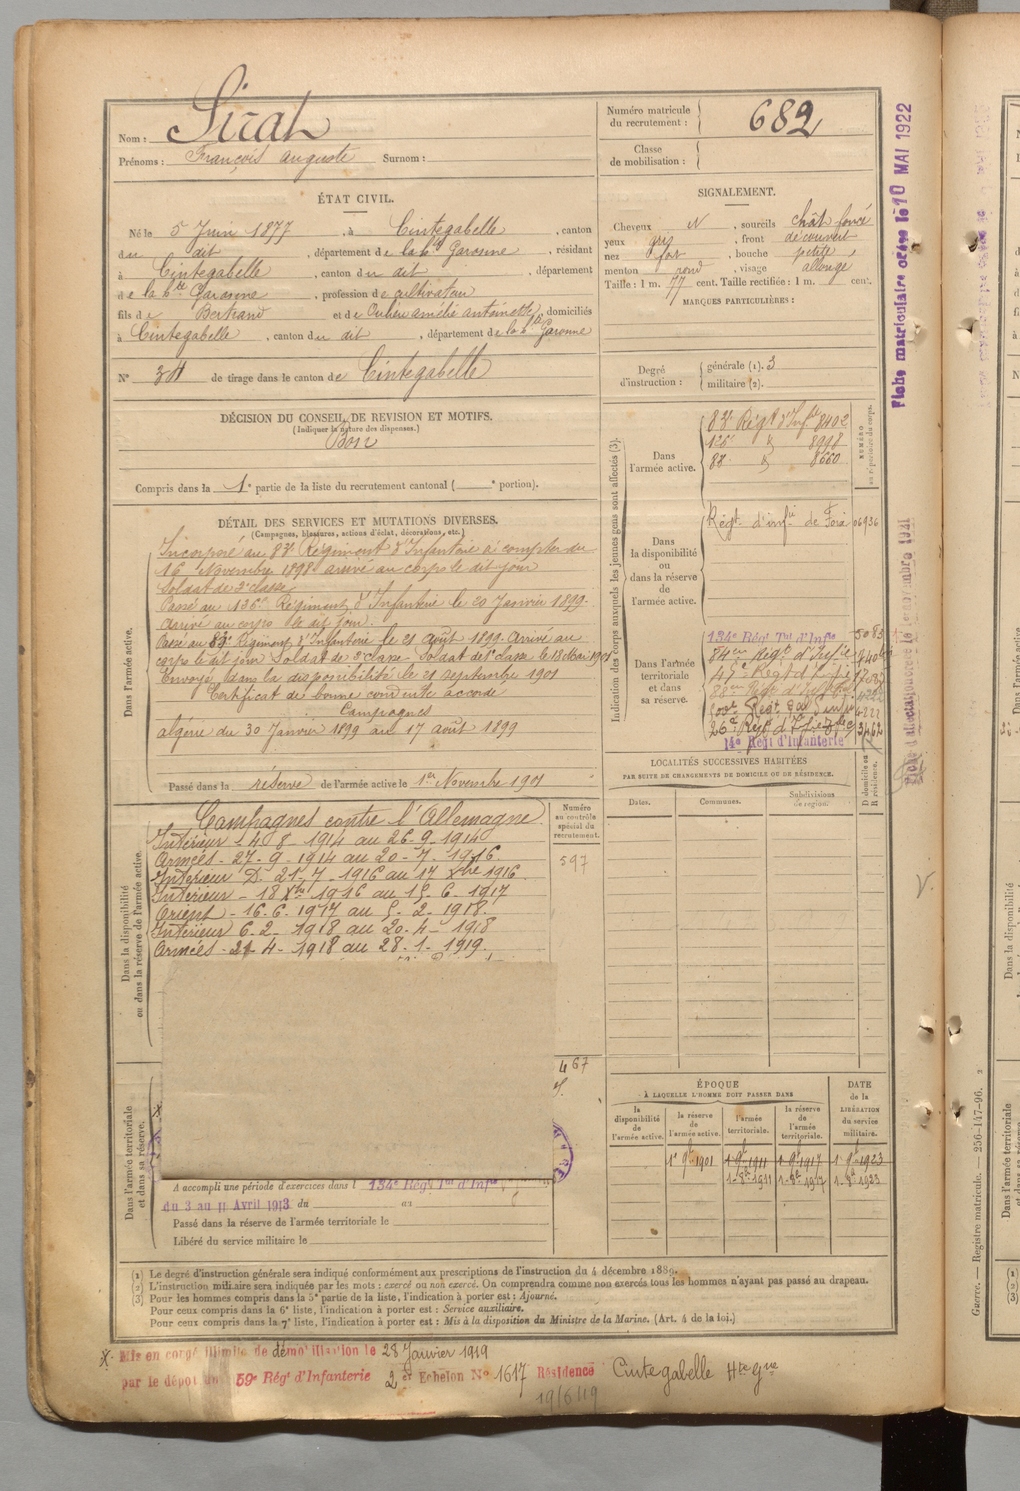 Nom : Sirat
Prénoms : François Auguste Surnom :
Numéro matricule du recrutement : 682
Classe de mobilisation :
ÉTAT CIVIL.
Né le 5 Juin 1877, à Cintegabelle, canton
du dit, département de la hte Garonne, résidant
à Cintegabelle, canton du dit, département
de la hte Garonne, profession de cultivateur
fils de Bertrand et de amélie antoinette, domiciliés
à Cintegabelle, canton du dit, département de la hte Garonne
N° 34 de tirage dans le canton de Cintegabelle
DÉCISION DU CONSEIL DE REVISION ET MOTIFS.
(Indiquer la nature des dispenses.)
Bon
Compris dans la 1e partie de la liste du recrutement cantonal ( e portion).
SIGNALEMENT.
Cheveux N, sourcils chât foncé
yeux gris, front découvert
nez fort, bouche petite
menton rond, visage allongé
Taille : 1 m. 77 cent. Taille rectifiée : 1 m. cent.
MARQUES PARTICULIÈRES :
Degré d'instruction : générale (1). 3
militaire (2).
Indication des corps auxquels les jeunes gens sont affectés (3).
NUMÉRO au répertoire du corps.
Dans l'armée active.
83e Régt d'Infie 8402
126e 8918
83e 8660
Dans la disponibilité ou dans la réserve de l'armée active.
Régt d'infie de Foix 06936
Dans l'armée territoriale et dans sa réserve.
134e Régt Tal d'Infie
84e Régt d'Infie
45e Régt d'Infie
88e Régt d'Inf
26e Régt d'Infie 3462
14e Régt d'Infanterie
DÉTAIL DES SERVICES ET MUTATIONS DIVERSES.
(Campagnes, blessures, actions d'éclat, décorations, etc.)
Dans l'armée active.
Incorporé au 83e Régiment d'Infanterie à compter du
16 Novembre 1898 arrivé au corps le dit jour
Soldat de 2e classe
Passé au 126e Régiment d'Infanterie le 20 Janvier 1899.
Arrivé au corps le dit jour.
Passé au 83e Régiment d'Infanterie le 21 août 1899. Arrivé au
corps le dit jour Soldat de 2e classe. Soldat de 1e classe le 18 Mai
Envoyé dans la disponibilité le 21 septembre 1901
Certificat de bonne conduite accordé
Campagnes
Algérie du 30 Janvier 1899 au 17 août 1899
Passé dans la réserve de l'armée active le 1er Novembre 1901
Dans la disponibilité ou dans la réserve de l'armée active.
Numéro au contrôle spécial du recrutement.
597
Campagnes contre l'Allemagne
Intérieur - 4 8 - 1914 au 26-9-1914
Armées - 27-9-1914 au 20-7-1916
Intérieur D. 21-7-1916 au 17 Xbre 1916
Intérieur - 18 Xbre 1916 au 15-6-1917
Orient - 16-6-1917 au 5-2-1918.
Intérieur 6-2-1918 au 20-4-1918
Armées - 21-4-1918 au 28-1-1919.
LOCALITÉS SUCCESSIVES HABITÉES
PAR SUITE DE CHANGEMENTS DE DOMICILE OU DE RÉSIDENCE.
Dates. Communes. Subdivisions de région. D domicile ou R résidence.
467
ÉPOQUE
À LAQUELLE L'HOMME DOIT PASSER DANS
la disponibilité de l'armée active.
la réserve de l'armée active.
l'armée territoriale.
la réserve de l'armée territoriale.
DATE de la LIBÉRATION du service militaire.
1e 9bre 1901 1-9bre 1911 1-9bre 1917 1-9bre 1923
1-8bre 1911 1-8bre 1917 1-8bre 1923
Dans l'armée territoriale et dans sa réserve.
A accompli une période d'exercices dans l 134e Régt Tal d'Infie
du 3 au 11 Avril 1913 du au
Passé dans la réserve de l'armée territoriale le
Libéré du service militaire le
(1) Le degré d'instruction générale sera indiqué conformément aux prescriptions de l'instruction du 4 décembre 1889.
(2) L'instruction militaire sera indiquée par les mots : exercé ou non exercé. On comprendra comme non exercés tous les hommes n'ayant pas passé au drapeau.
(3) Pour les hommes compris dans la 5e partie de la liste, l'indication à porter est : Ajourné.
Pour ceux compris dans la 6e liste, l'indication à porter est : Service auxiliaire.
Pour ceux compris dans la 7e liste, l'indication à porter est : Mis à la disposition du Ministre de la Marine. (Art. 4 de la loi.)
X. Mis en congé illimité de démobilisation le 28 Janvier 1919
par le dépôt du 59e Régt d'Infanterie 2er Echelon No 1617 Résidence Cintegabelle Hte Gne
19/6/19
Fiche matriculaire créée le 10 MAI 1922
Guerre. — Registre matricule. — 256-147-96.